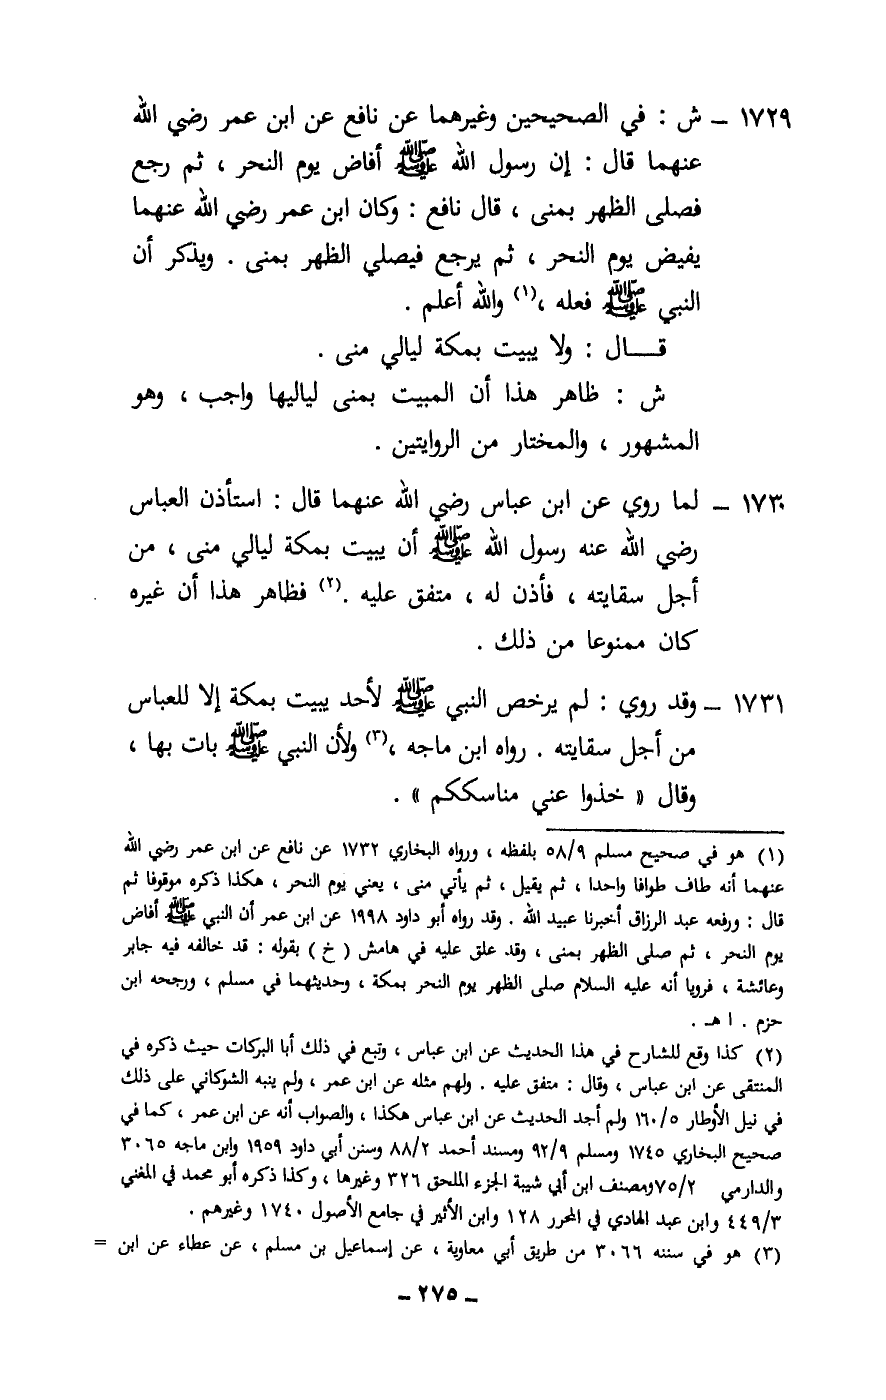 ١٧٢٩ ـ ش : في الصحيحين وغيرهما عن نافع عن ابن عمر رضي الله
عنهما قال : إن رسول الله ﷺ أفاض يوم النحر ، ثم رجع
فصلى الظهر بمنى ، قال نافع : وكان ابن عمر رضي الله عنهما
يفيض يوم النحر ، ثم يرجع فيصلي الظهر بمنى . ويذكر أن
النبي ﷺ فعله ،(١) والله أعلم .
قـــال : ولا يبيت بمكة ليالي منى .
ش : ظاهر هذا أن المبيت بمنى لياليها واجب ، وهو
المشهور ، والمختار من الروايتين .
١٧٣٠ ـ لما روي عن ابن عباس رضي الله عنهما قال : استأذن العباس
رضي الله عنه رسول الله ﷺ أن يبيت بمكة ليالي منى ، من
أجل سقايته ، فأذن له ، متفق عليه .(٢) فظاهر هذا أن غيره
كان ممنوعا من ذلك .
١٧٣١ ـ وقد روي : لم يرخص النبي ﷺ لأحد يبيت بمكة إلا للعباس
من أجل سقايته . رواه ابن ماجه ،(٣) ولأن النبي ﷺ بات بها ،
وقال « خذوا عني مناسككم » .
(١) هو في صحيح مسلم ٥٨/٩ بلفظه ، ورواه البخاري ١٧٣٢ عن نافع عن ابن عمر رضي الله
عنهما أنه طاف طوافا واحدا ، ثم يقيل ، ثم يأتي منى ، يعني يوم النحر ، هكذا ذكره موقوفا ثم
قال : ورفعه عبد الرزاق أخبرنا عبيد الله . وقد رواه أبو داود ١٩٩٨ عن ابن عمر أن النبي ﷺ أفاض
يوم النحر ، ثم صلى الظهر بمنى ، وقد علق عليه في هامش ( خ ) بقوله : قد خالفه فيه جابر
وعائشة ، فرويا أنه عليه السلام صلى الظهر يوم النحر بمكة ، وحديثهما في مسلم ، ورجحه ابن
حزم . ا هـ .
(٢) كذا وقع للشارح في هذا الحديث عن ابن عباس ، وتبع في ذلك أبا البركات حيث ذكره في
المنتقى عن ابن عباس ، وقال : متفق عليه . ولهم مثله عن ابن عمر ، ولم ينبه الشوكاني على ذلك
في نيل الأوطار ١٦٠/٥ ولم أجد الحديث عن ابن عباس هكذا ، والصواب أنه عن ابن عمر ، كما في
صحيح البخاري ١٧٤٥ ومسلم ٩٢/٩ ومسند أحمد ٨٨/٢ وسنن أبي داود ١٩٥٩ وابن ماجه ٣٠٦٥
والدارمي ٧٥/٢ ومصنف ابن أبي شيبة الجزء الملحق ٣٢٦ وغيرها ، وكذا ذكره أبو محمد في المغني
٤٤٩/٣ وابن عبد الهادي في المحرر ١٢٨ وابن الأثير في جامع الأصول ١٧٤٠ وغيرهم .
(٣) هو في سننه ٣٠٦٦ من طريق أبي معاوية ، عن إسماعيل بن مسلم ، عن عطاء عن ابن =
ـ ٢٧٥ ـ